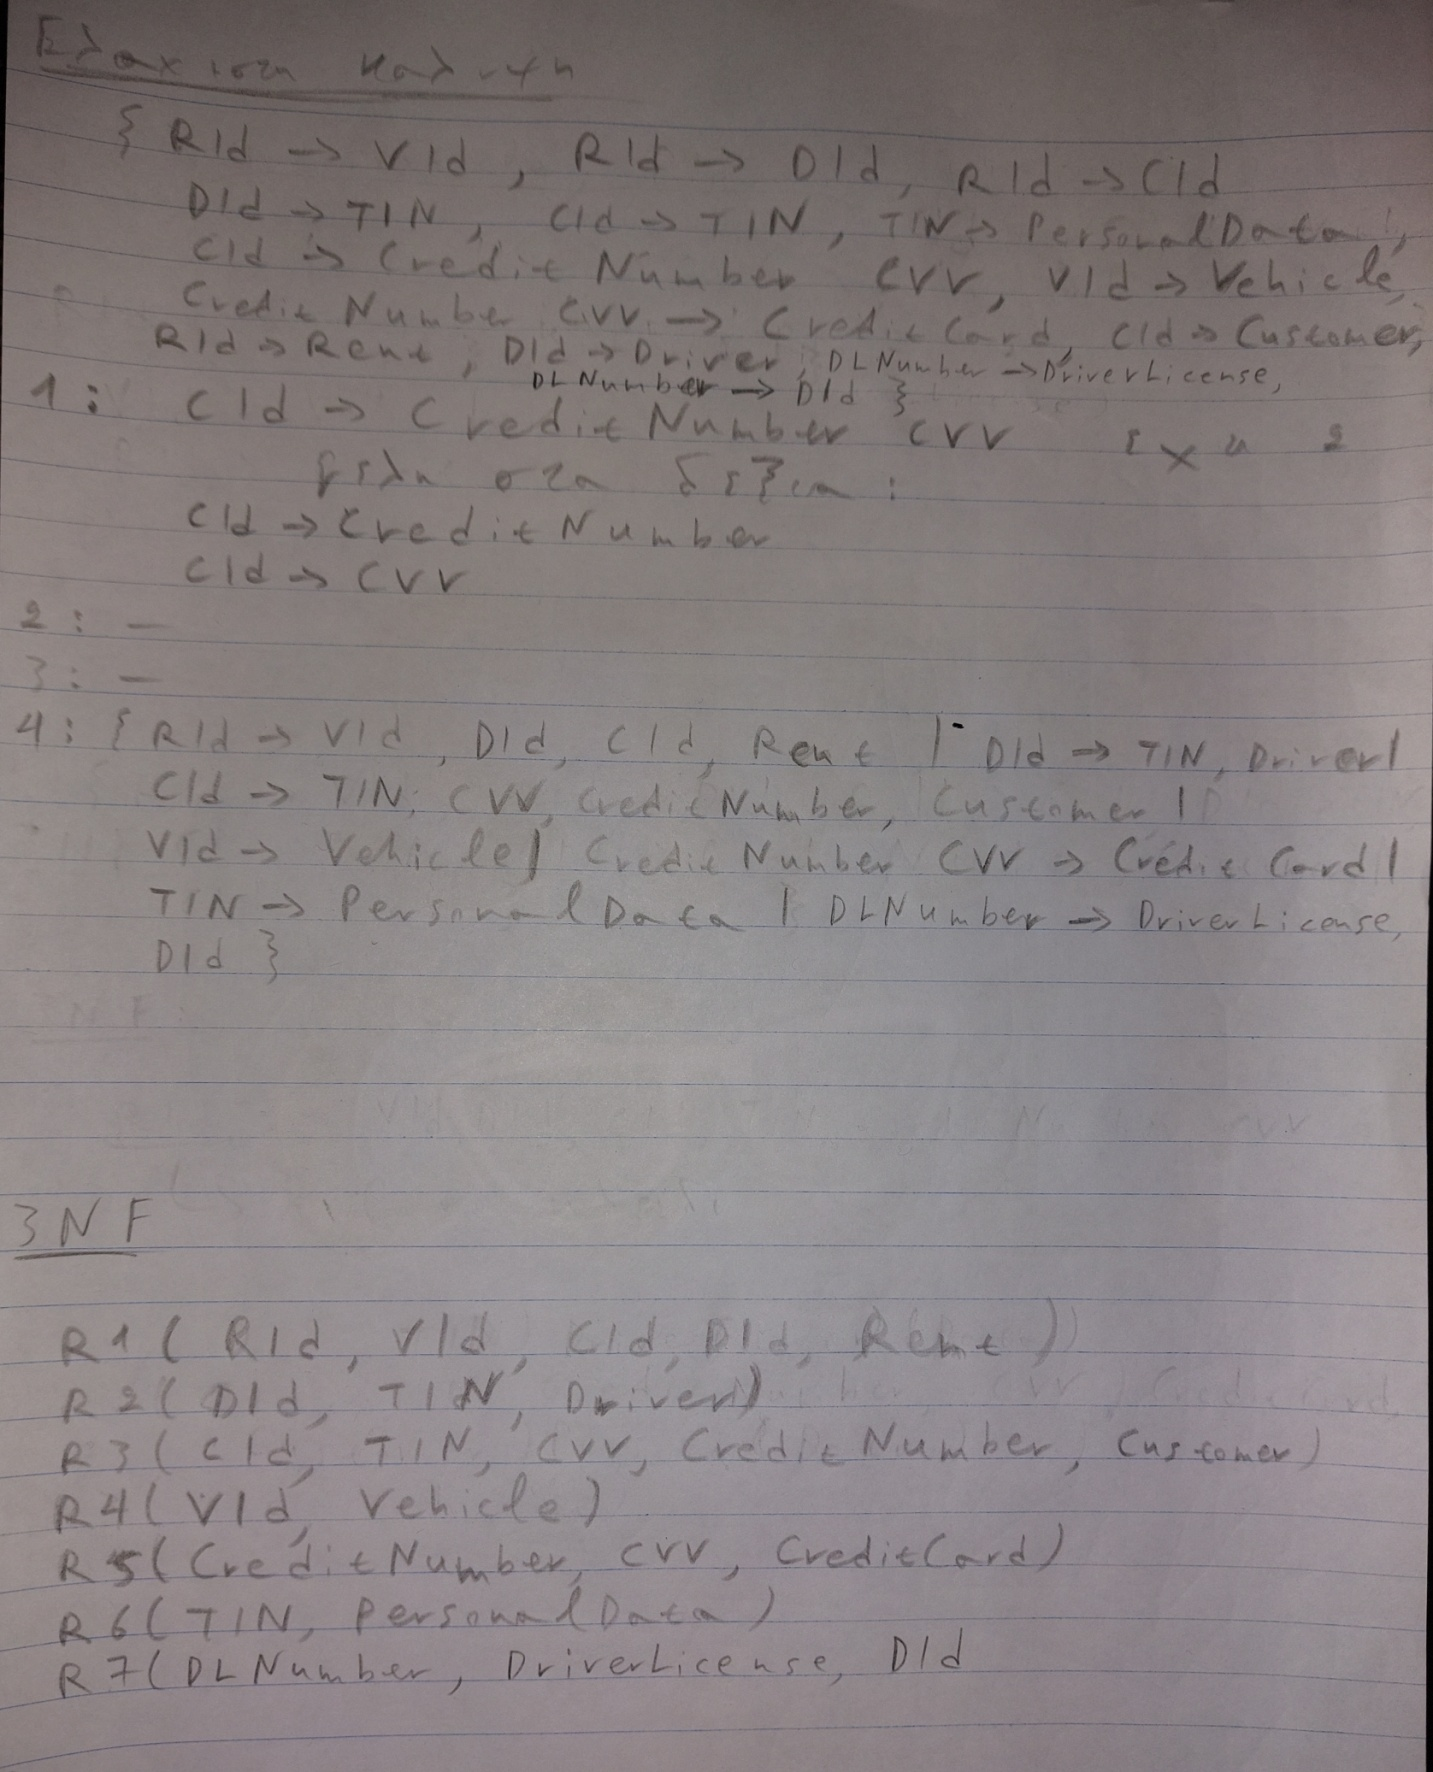 Ελαχιστη καλυψη
{ RId → VId , RId → DId, RId → CId
DId → TIN , CId → TIN , TIN → PersonalData ,
CId → Credit Number CVV, VId → Vehicle,
Credit Number CVV → Credit Card, CId → Customer,
RId → Rent , DId → Driver, DLNumber → DriverLicense,
DLNumber → DId }
1: CId → CreditNumber CVV εχω 2
μελη στα δεξια :
CId → CreditNumber
CId → CVV
2: —
3: —
4: { RId → VId , DId, CId, Rent | DId → TIN, Driver |
CId → TIN, CVV, CreditNumber, Customer |
VId → Vehicle | Credit Number CVV → Credit Card |
TIN → PersonalData | DLNumber → DriverLicense,
DId }
3NF
R1( RId, VId, CId, DId, Rent )
R2( DId, TIN, Driver)
R3( CId, TIN, CVV, CreditNumber, Customer)
R4( VId, Vehicle)
R5( CreditNumber, CVV, CreditCard)
R6( TIN, PersonalData )
R7( DLNumber, DriverLicense, DId